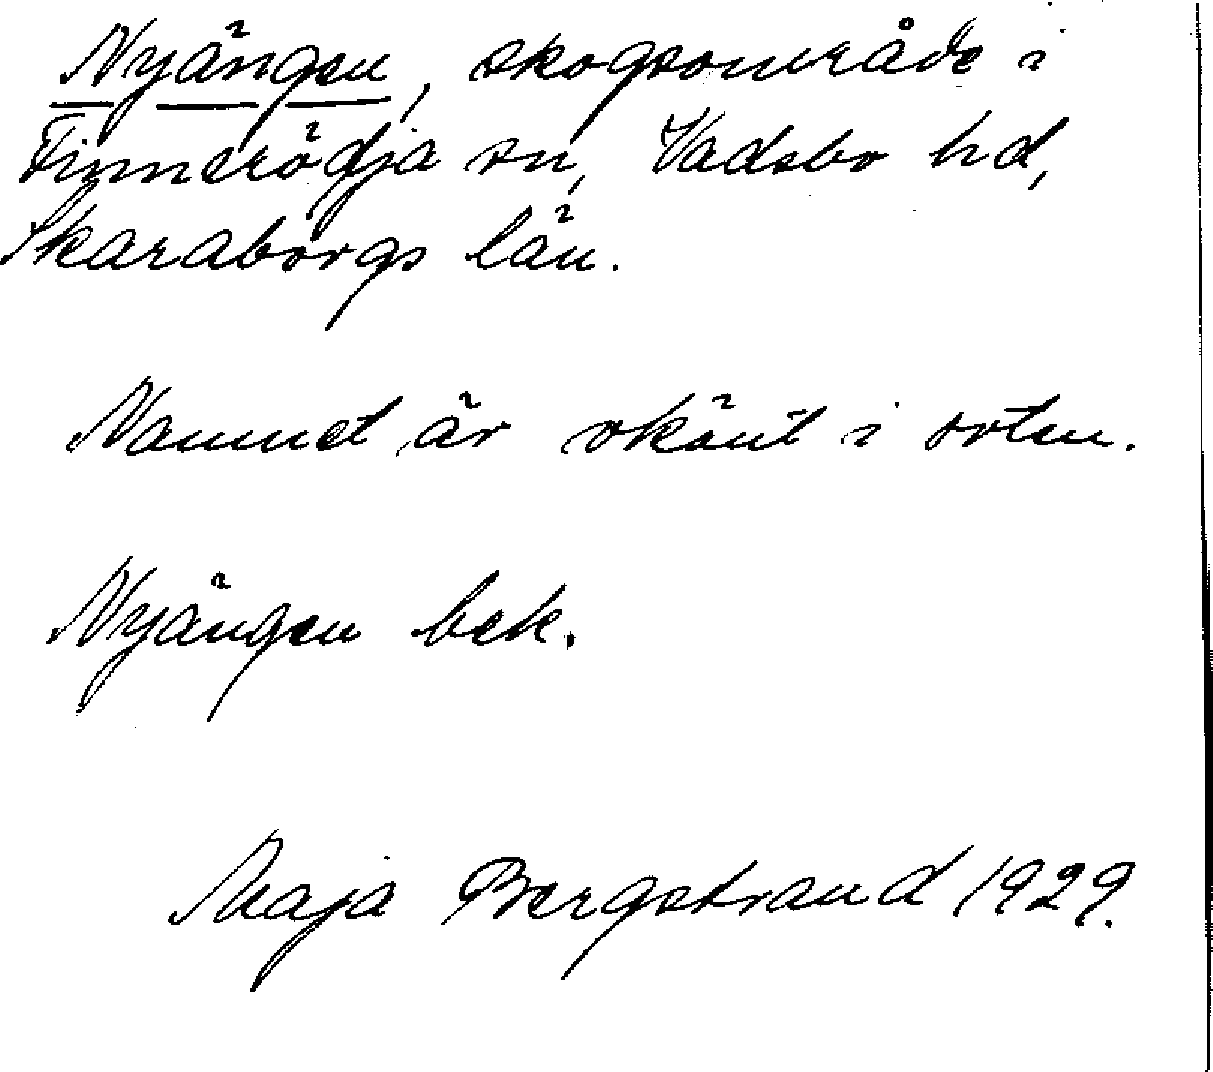 Nyängen, skogsområde i
Finnerödja sn, Vadsbo hd,
Skaraborgs län.
Namnet är okänt i orten.
Nyängen bek.
Maja Bergstrand 1929.